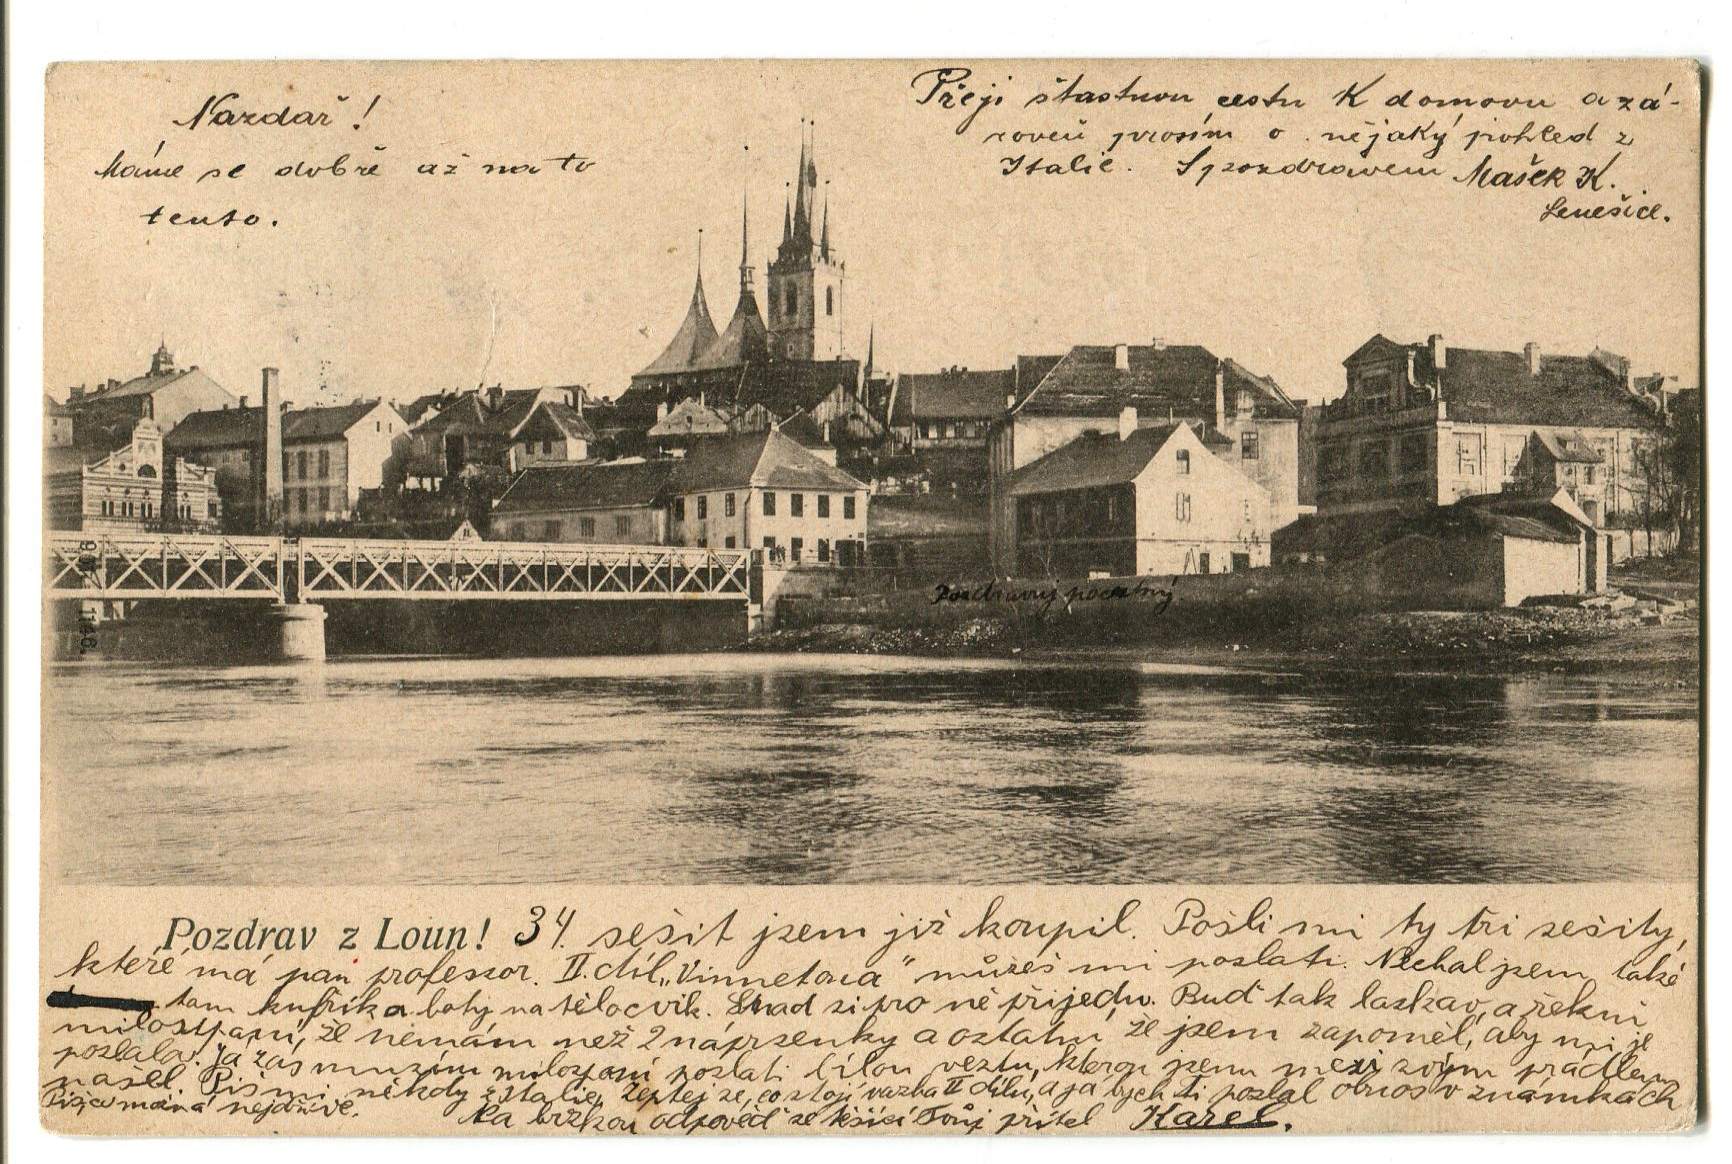 Nazdar!
Máme se dobře až na to
tento.
Přeji štastnou cestu k domovu a zá-
roveň prosím o nějaký pohled z
Italie. S pozdravem Mašek K.
Lenešice.
Pozdravuj pocestný
Pozdrav z Loun! 34. sešit jsem již koupil. Pošli mi ty tři sešity,
které má pan professor. II. díl „Vinnetoua" můžeš mi poslati. Nechal jsem také
tam kufřík a boty na tělocvik. Snad si pro ně přijedu. Buď tak laskav, a řekni
milostpaní, že nemám než 2 náprsenky a ostatní, že jsem zapoměl, aby mi je
poslala. Já zas musím milospaní poslati bílou vestu, kterou jsem mezi svým prádlem
našel. Piš mi někdy z Italie. Zeptej se, co stojí vazba II dílu, a já bych ti poslal obnos v známkách
Piš co možná nejdříve. Na brzkou odpověď se těšící Tvůj přítel Karel.